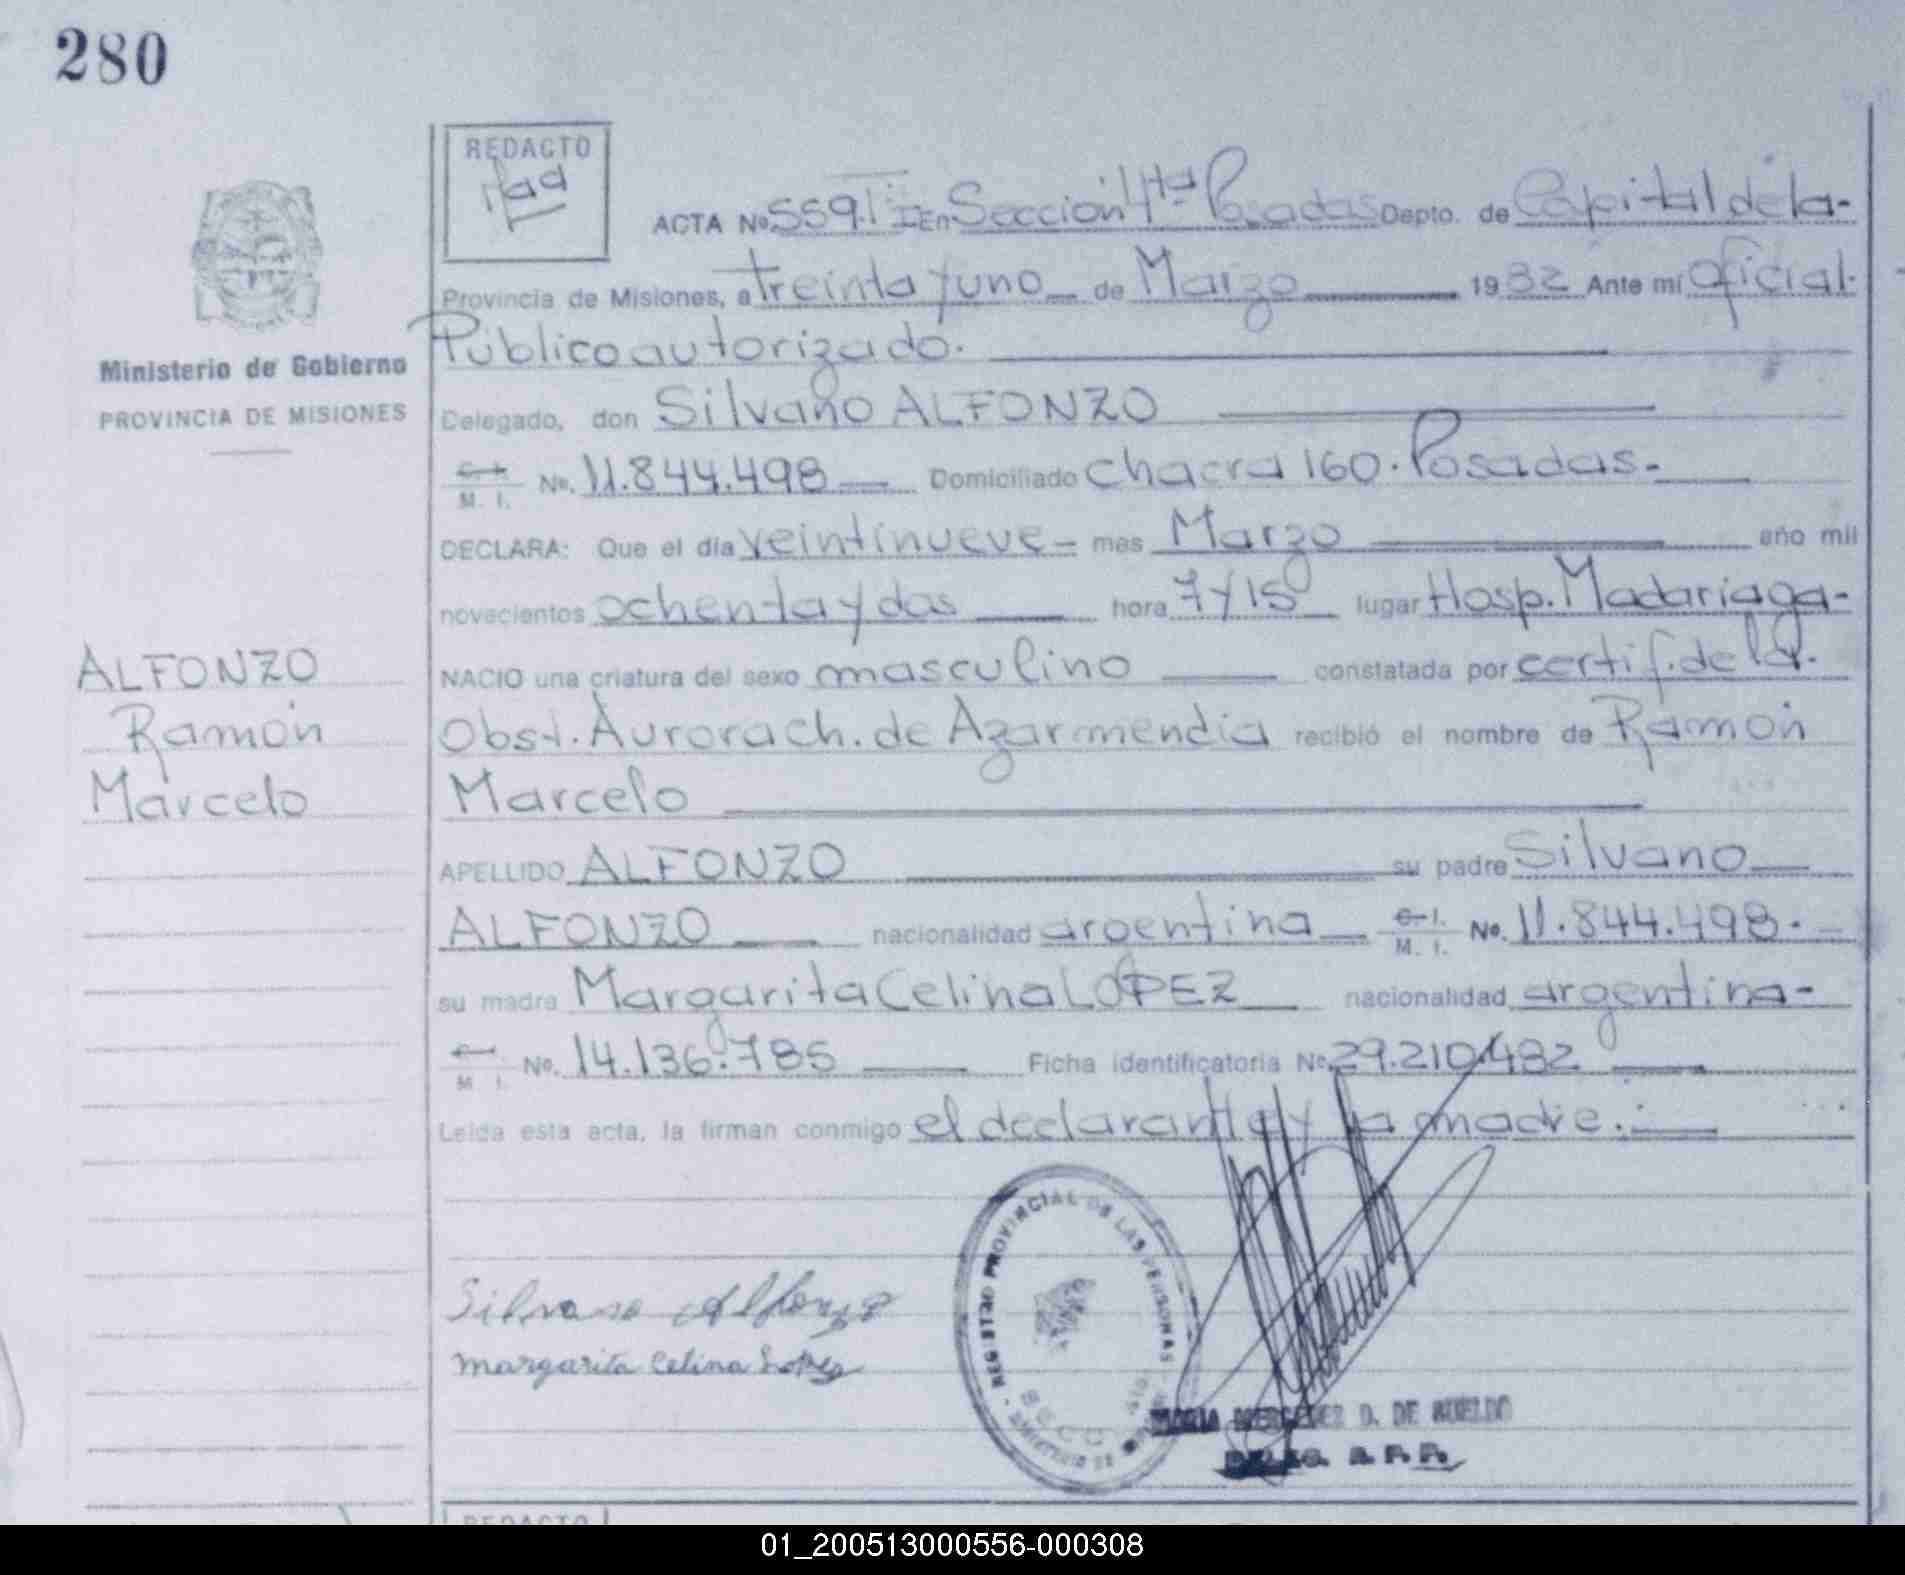 280
REDACTO
ACTA No. 559.T I En Sección 4ta Posadas Depto. de Capital de la-
Provincia de Misiones, a treinta y uno de Marzo 1982 Ante mí Oficial.
Público autorizado.
Ministerio de Gobierno
PROVINCIA DE MISIONES
Delegado, don Silvano ALFONZO
C. I. M. I. No. 11.844.498 Domiciliado Chacra 160. Posadas.-
DECLARA: Que el día veintinueve - mes Marzo año mil
novecientos ochenta y dos hora 7 y 15º lugar Hosp. Madariaga-
NACIO una criatura del sexo masculino constatada por certif. de la
Obst. Aurora ch. de Azarmendia recibió el nombre de Ramón
Marcelo
ALFONZO
Ramón
Marcelo
APELLIDO ALFONZO su padre Silvano
ALFONZO nacionalidad argentina C. I. M. I. No. 11.844.498.-
su madre Margarita Celina LOPEZ nacionalidad argentina-
M I. No. 14.136.785 Ficha identificatoria No. 29.210.482
Leída esta acta, la firman conmigo el declarante y la madre.
Silvano Alfonzo
Margarita Celina Lopez
REGISTRO PROVINCIAL DE LAS PERSONAS
MARIA MERCEDES D. DE
DELEG. R. P. P.
REDACTO
01_200513000556-000308